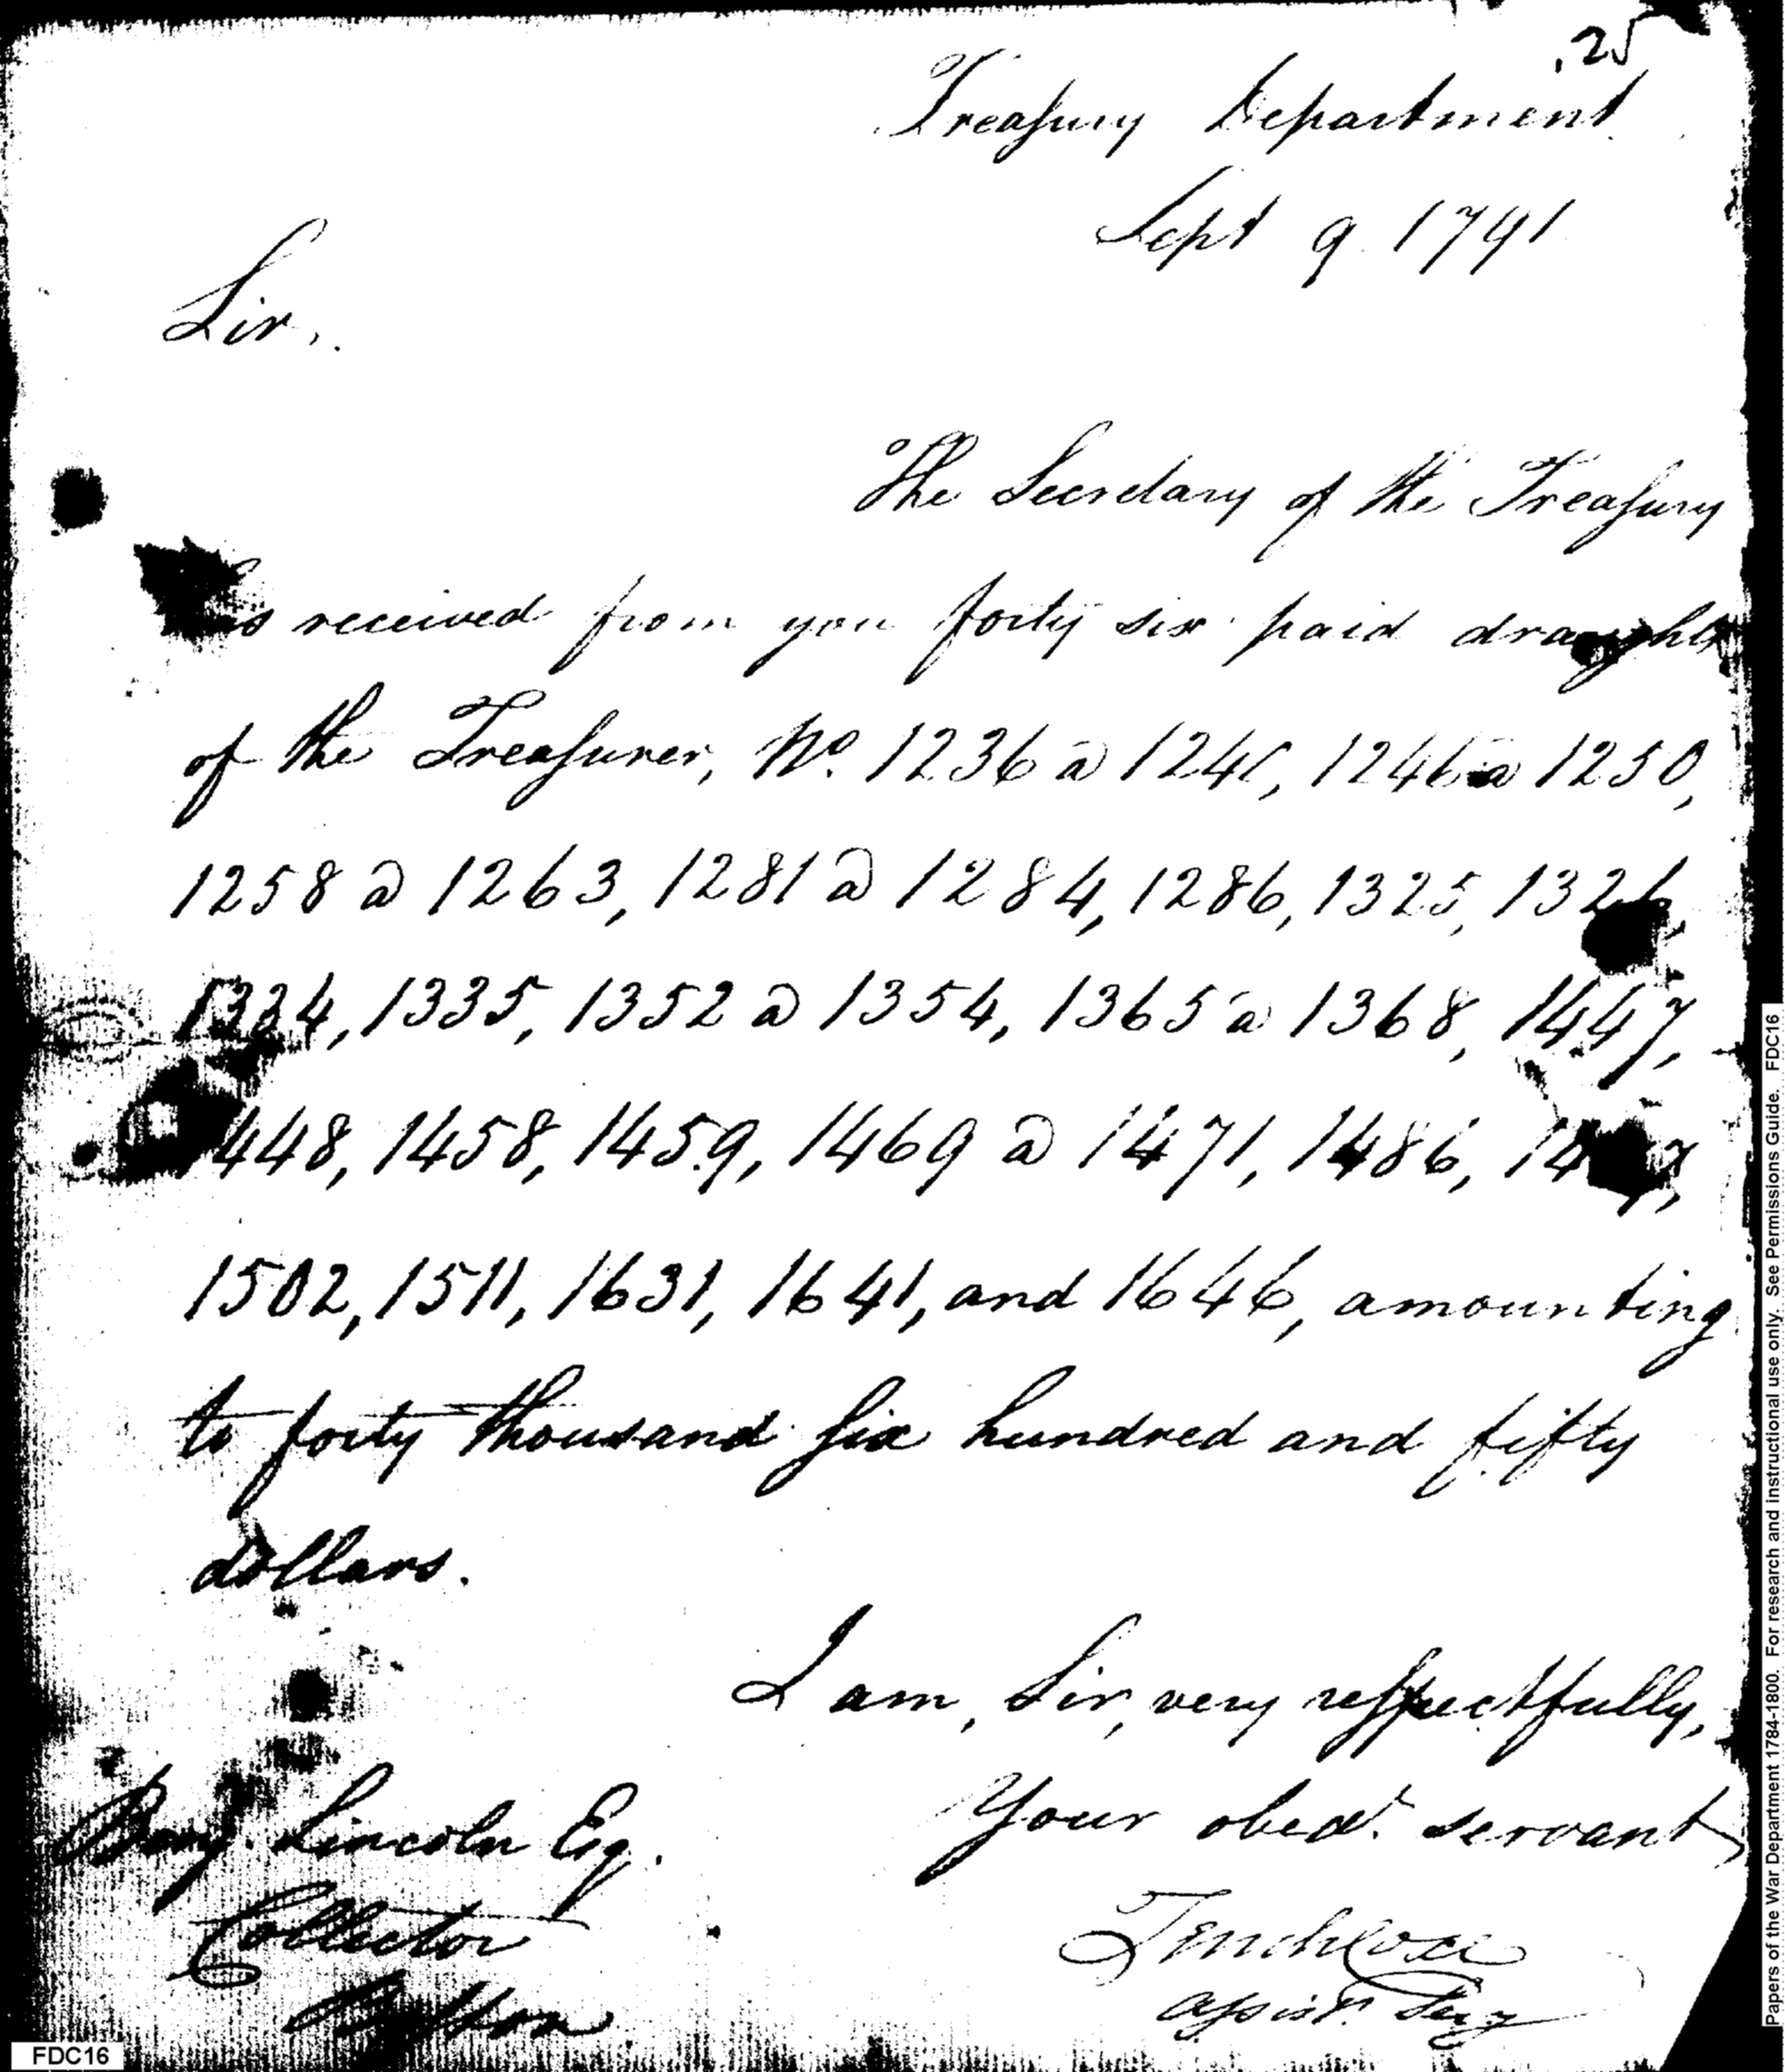 .25
Treasury Department
Sept 9 1791
Sir,
The Secretary of the Treasury
has received from you forty six paid draughts
of the Treasurer, No. 1236 a 1240, 1246 a 1250,
1258 a 1263, 1281 a 1284, 1286, 1325, 1326,
1334, 1335, 1352 a 1354, 1365 a 1368, 1447,
1448, 1458, 1459, 1469 a 1471, 1486,
1502, 1511, 1631, 1641, and 1646, amounting
to forty thousand six hundred and fifty
dollars.
I am, Sir, very respectfully,
Your obedt. servant
Tench Coxe
Assist. Secy
Benj. Lincoln Esq.
Collector
Boston
FDC16
Papers of the War Department 1784-1800. For research and instructional use only. See Permissions Guide. FDC16